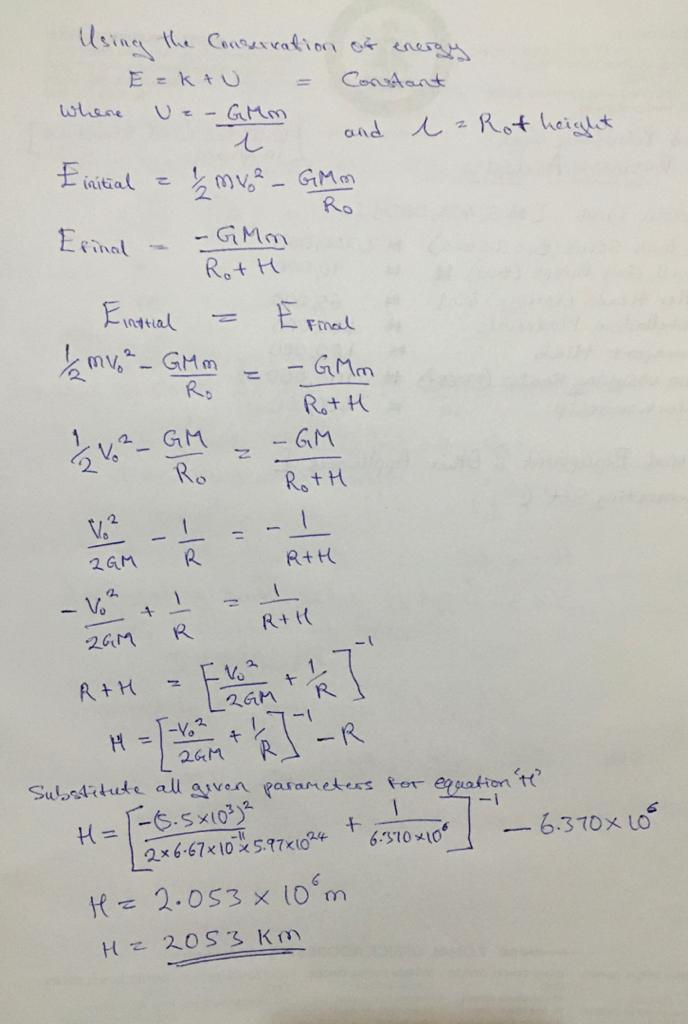 Using the Conservation of energy
E = K + U = Constant
where U = - GMm / r and r = R₀ + height
E initial = 1/2 mV₀² - GMm / R₀
E final = - GMm / R₀ + H
E initial = E Final
1/2 mV₀² - GMm / R₀ = - GMm / R₀ + H
1/2 V₀² - GM / R₀ = - GM / R₀ + H
V₀² / 2GM - 1 / R = - 1 / R + H
- V₀² / 2GM + 1 / R = 1 / R + H
R + H = [-V₀² / 2GM + 1/R]⁻¹
H = [-V₀² / 2GM + 1/R]⁻¹ - R
Substitute all given parameters for equation 'H'
H = [-(5.5 x 10³)² / 2 x 6.67 x 10⁻¹¹ x 5.97 x 10²⁴ + 1 / 6.370 x 10⁶]⁻¹ - 6.370 x 10⁶
H = 2.053 x 10⁶ m
H = 2053 Km